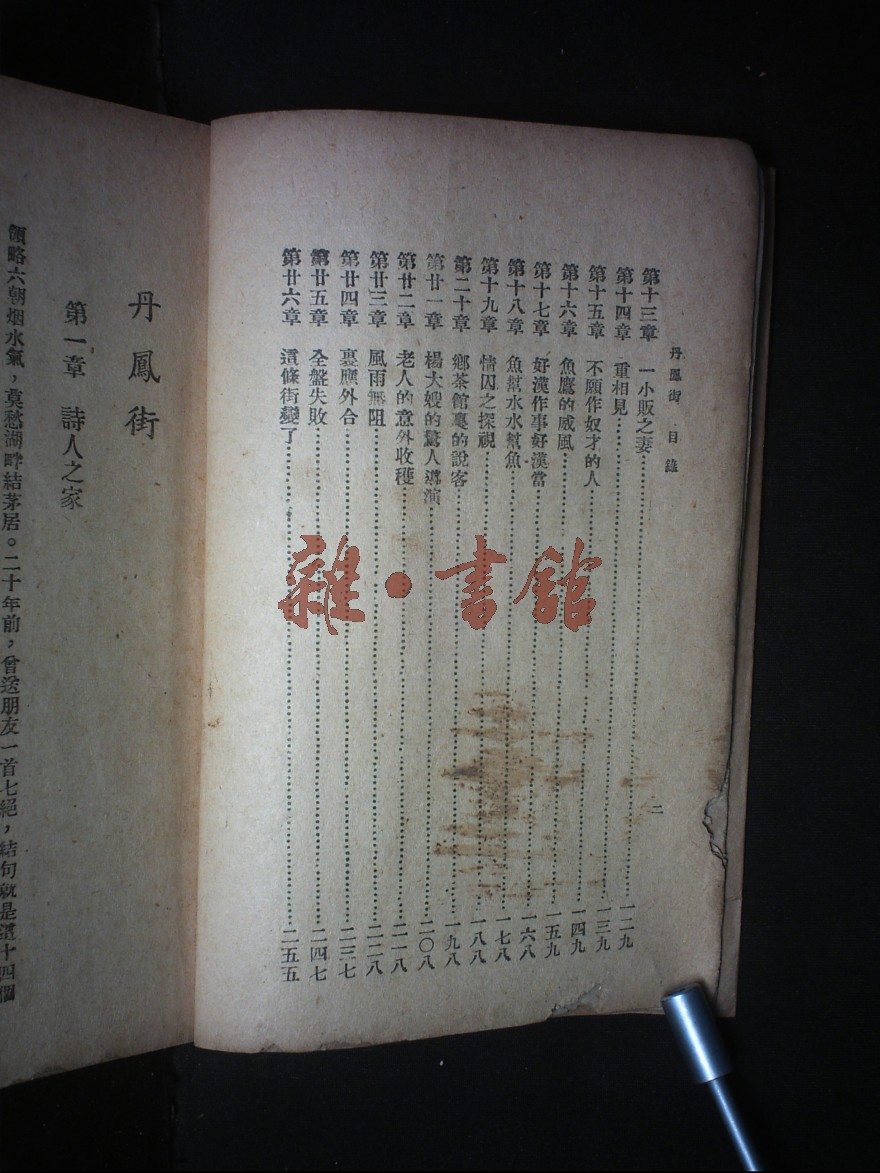 丹鳳街 目錄
二
第十三章 一小販之妻……一二九
第十四章 重相見……一三九
第十五章 不願作奴才的人……一四九
第十六章 魚鷹的威風……一五九
第十七章 好漢作事好漢當……一六八
第十八章 魚幫水水幫魚……一七八
第十九章 情囚之探視……一八八
第二十章 鄉茶館裏的說客……一九八
第廿一章 楊大嫂的驚人導演……二〇八
第廿二章 老人的意外收穫……二一八
第廿三章 風雨無阻……二二八
第廿四章 裏應外合……二三七
第廿五章 全盤失敗……二四七
第廿六章 這條街變了……二五五
丹鳳街
第一章 詩人之家
領略六朝烟水氣，莫愁湖畔結茅居。二十年前，曾送朋友一首七絕，結句就是這十四個
雜·書館